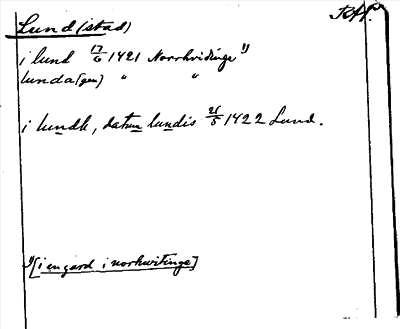 Lund (stad)
i lund 17/6 1421 Norrhvidinge 1)
lunda (gen) " "
i lundh, datum lundis 21/5 1422 Lund.
1) [i en gard i norhwitinge]